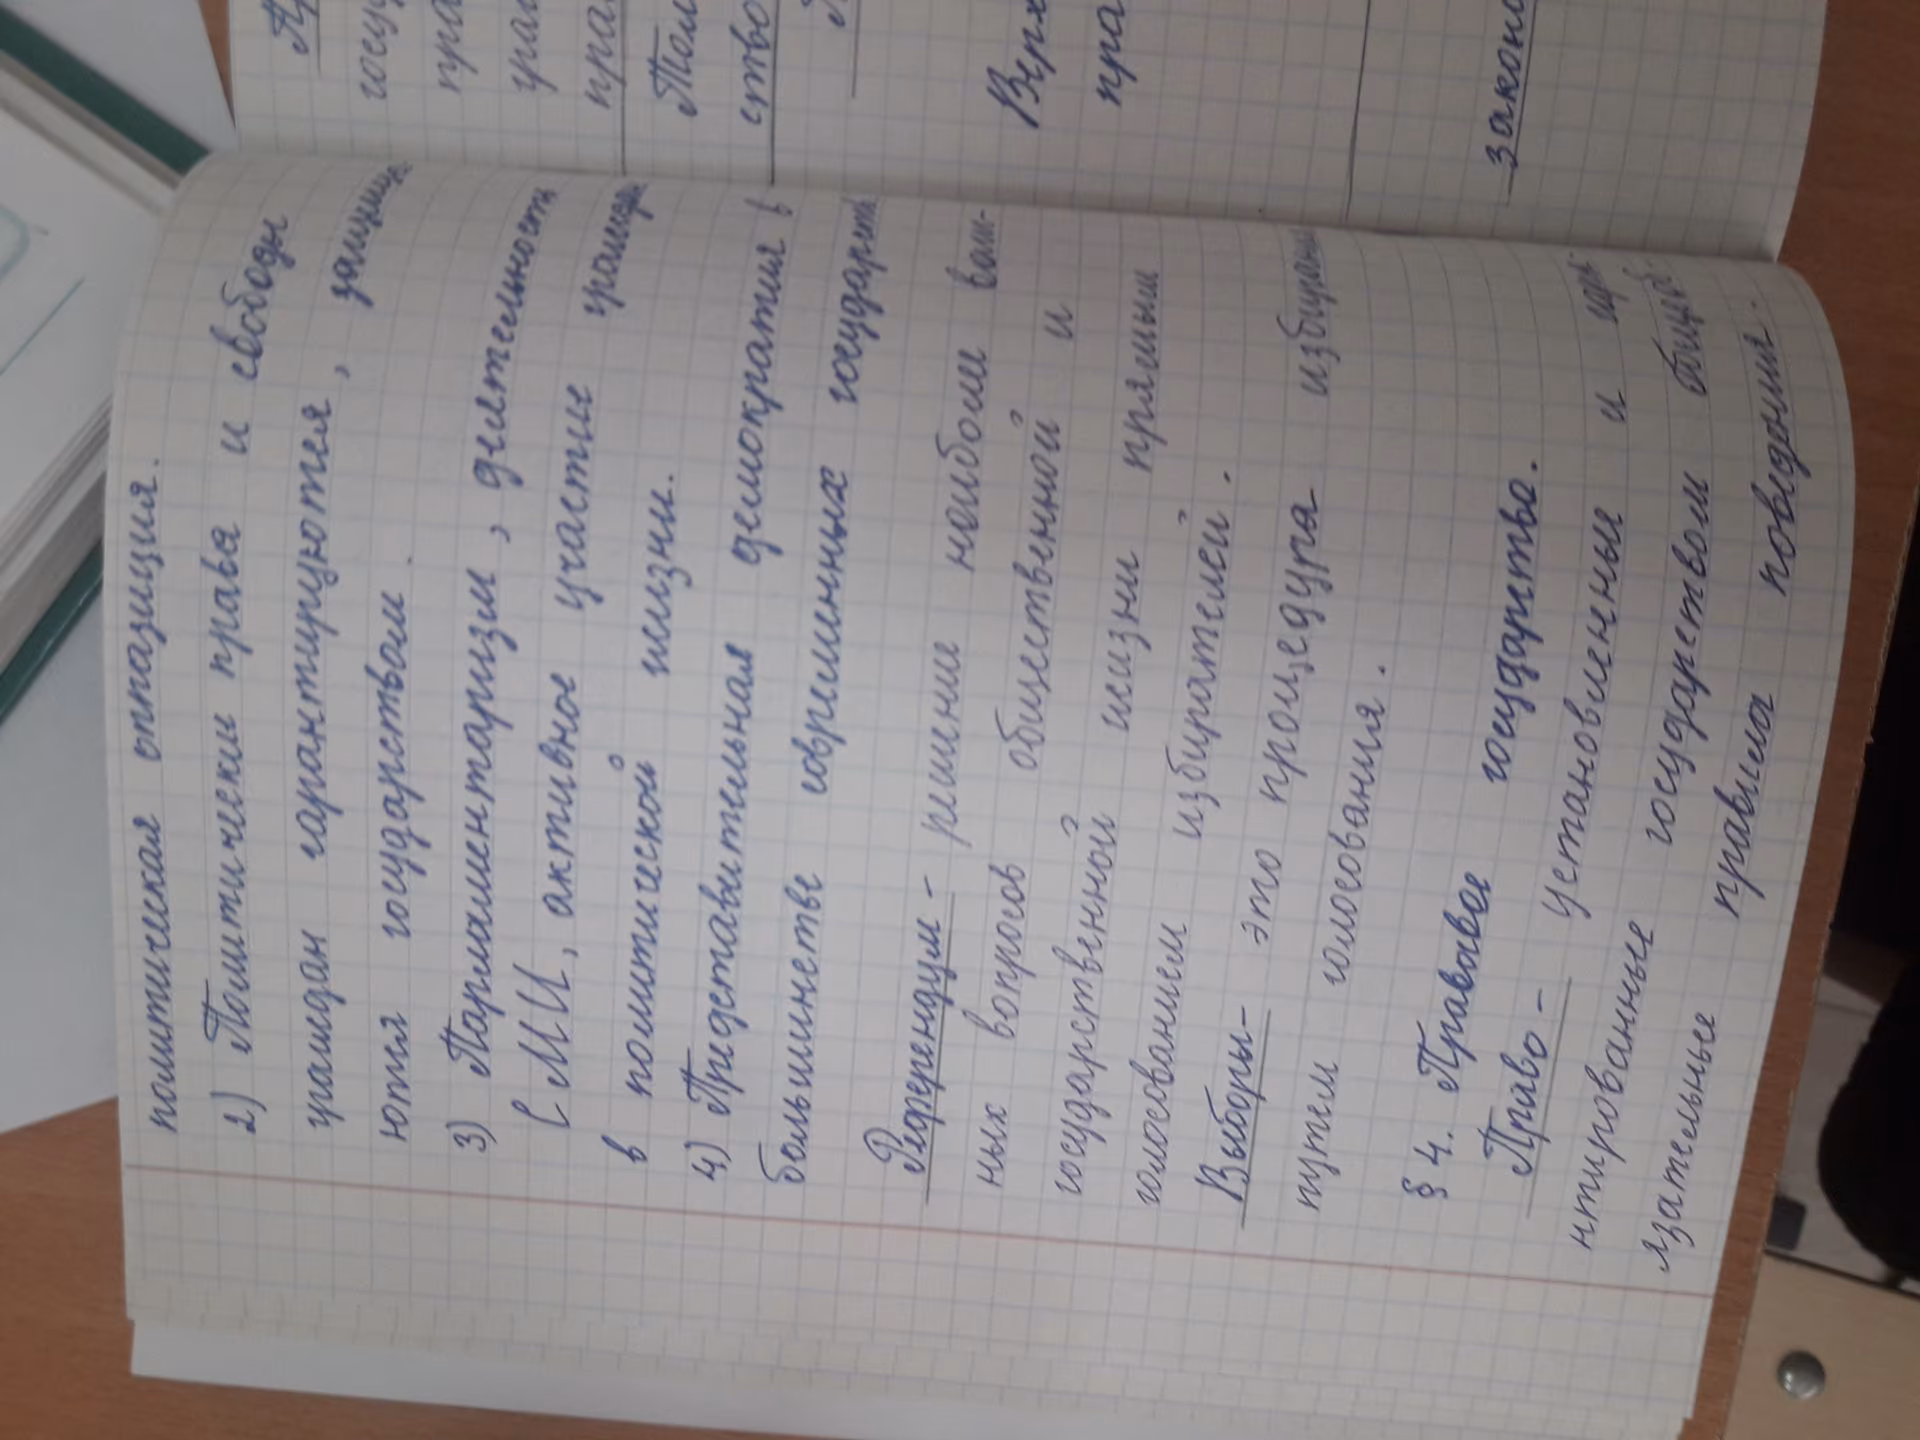 политическая оппазиция.
2) Политически права и свободы
граждан гарантируются, защища
ются государством.
3) Парламентаризм, деятельность
СМИ, активное участие граждан
в политической жизни.
4) Представительная демократия в
большинстве современных государств
Референдум - решение наиболее важ-
ных вопросов общественной и
государственной жизни прямым
голосованием избирателей.
Выборы - это процедура избирания
путем голосования.
§ 4. Правовое государство.
Право - установленные и гара
нтированные государством общеоб
язательные правила поведения.
госу
пра
граж
пра
ство
Верх
пра
законо